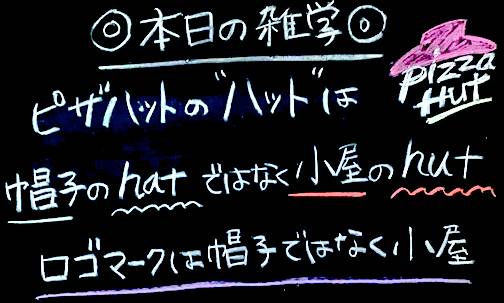 ◎本日の雑学◎
pizza
Hut
ピザハットの"ハット"は
帽子のhatではなく小屋のhut
ロゴマークは帽子ではなく小屋